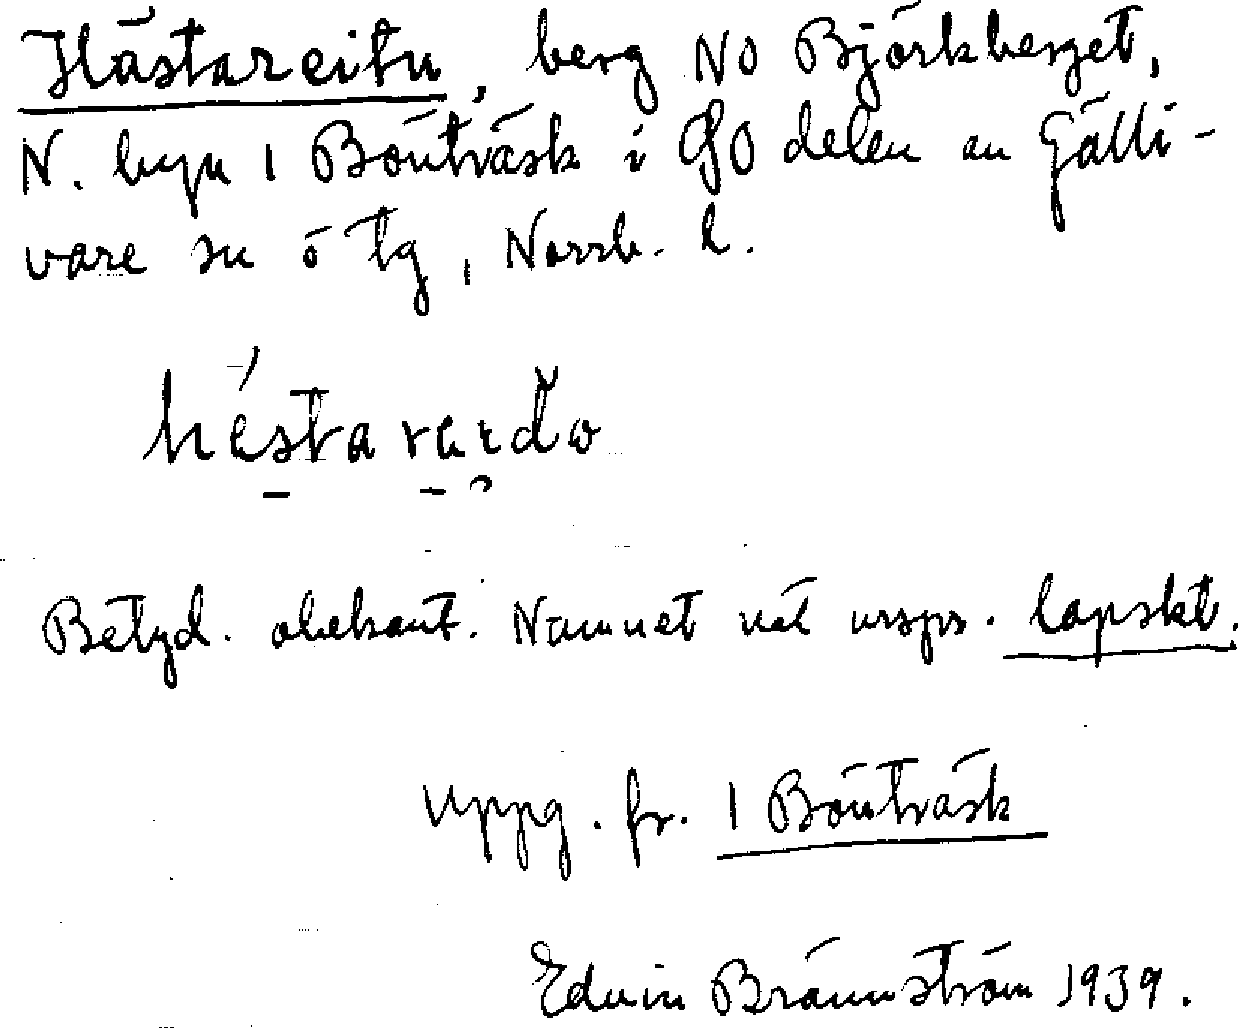 Hästareitu, berg NO Björkberget,
N. byn 1 Bönträsk i SO delen av Gälli-
vare sn o tg, Norrb. l.
hèstareɪđo
Betyd. obekant. Namnet väl urspr. lapskt.
Uppg. fr. 1 Bönträsk
Edvin Brännström 1939.